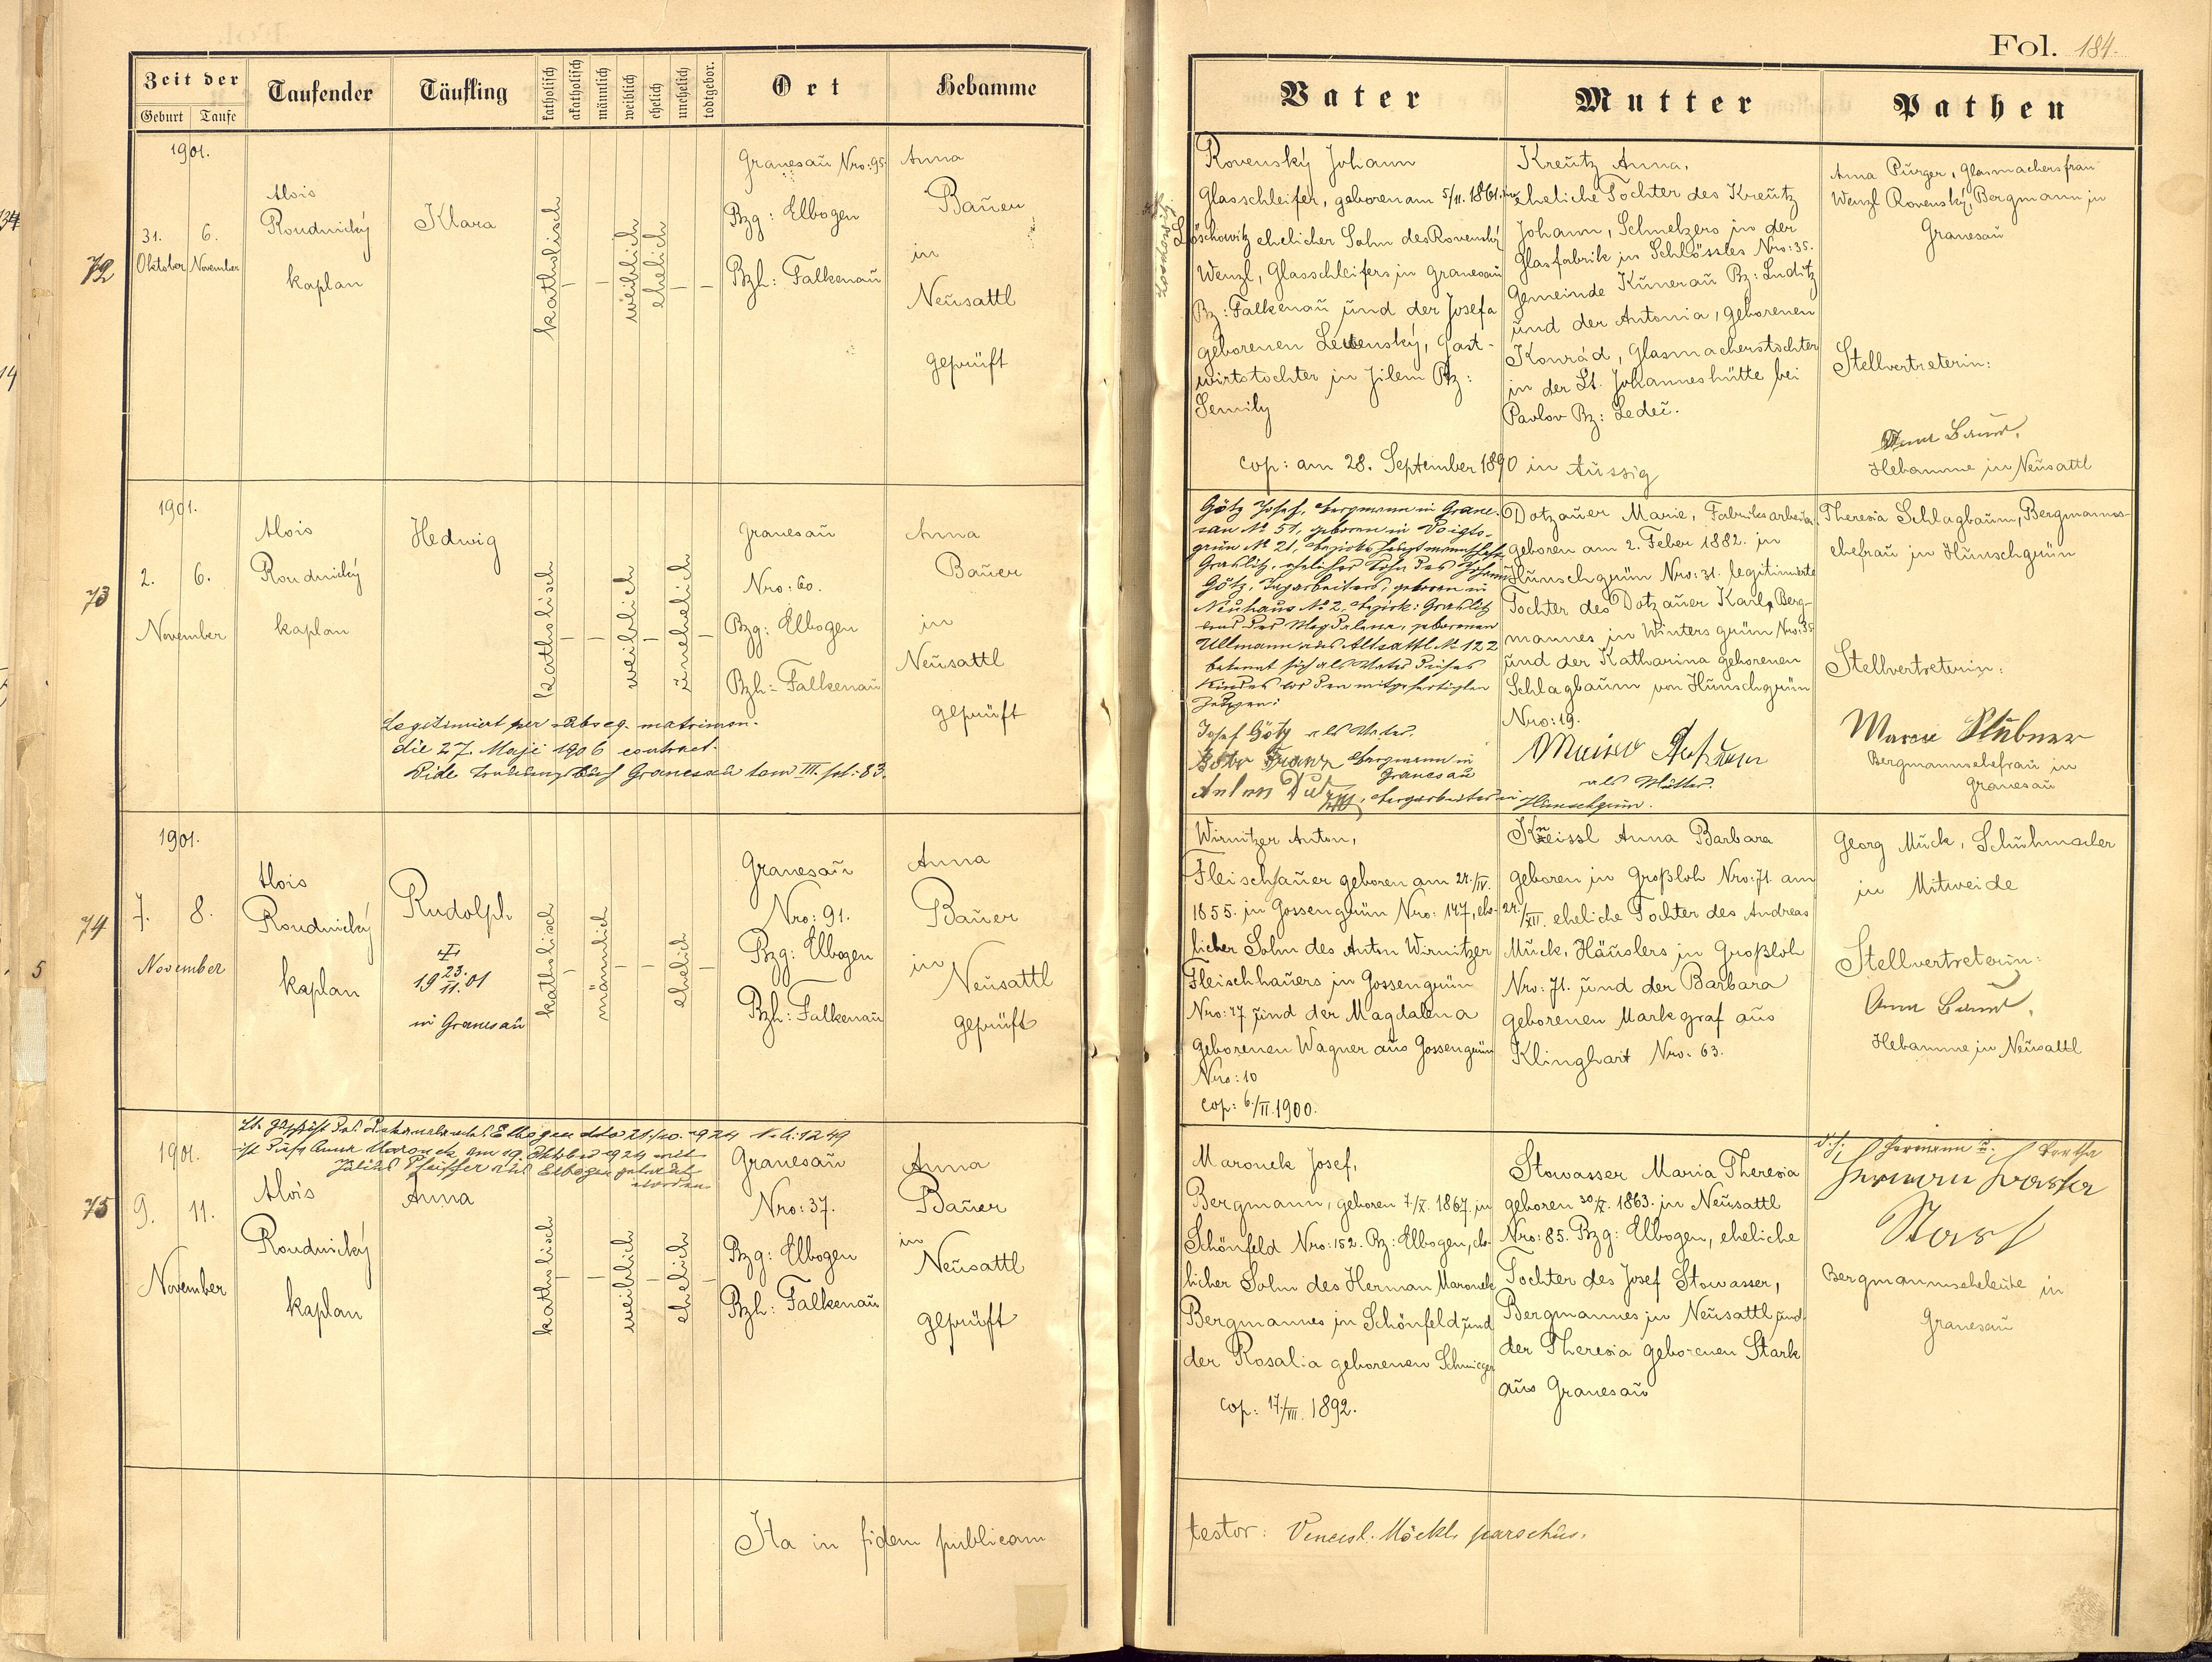 Fol. 184.
Zeit der
Geburt Taufe
Taufender
Täufling
katholisch
akatholisch
männlich
weiblich
ehelich
unehelich
todtgebor.
Ort
Hebamme
Vater
Mutter
Pathen
72
1901.
31. 6.
Oktober November
Alois
Roudnický
kaplan
Klara
katholisch
weiblich
ehelich
Granesau Nro: 95
Bzg: Elbogen
Bzh: Falkenau
Anna
Bauer
in
Neusattl
geprüft
Rovenský Johann
Glasschleifer, geboren am 5/11. 1861. in
Löschowitz ehelicher Sohn des Rovenský
Wenzl, Glasschleifers in Granesau
Bz: Falkenau und der Josefa
geborenen Gast-
wirtstochter in Jilem Bz:
Semily
cop: am 28. September 1890 in Aussig
Kreutz Anna,
eheliche Tochter des Kreutz
Johann, Schmelzers in der
Glasfabrik in Schlössles Nro: 35.
Gemeinde Kunerau Bz: Luditz
und der Antonia, geborenen
Konrád, Glasmacherstochter
in der St. Johanneshütte bei
Pavlov Bz: Ledeč.
Anna Purger, Glasmachersfrau
Wenzl Rovenský, Bergmann in
Granesau
Stellvertreterin:
Anna Bauer,
Hebamme in Neusattl
73
1901.
2. 6.
November
Alois
Roudnický
kaplan
Hedwig
katholisch
weiblich
unehelich
Granesau
Nro: 60.
Bzg: Elbogen
Bzh: Falkenau
Anna
Bauer
in
Neusattl
geprüft
Legitimiert per subseq. matrimon.
die 27. Maji 1906 contract.
Vide Trauungsbuch Granesau tom III. fol: 83.
Götz Josef, Bergmann in Grane-
sau № 51, geboren in Voigts-
grün № 21, Bezirkshauptmannschaft
Graslitz, ehelicher Sohn des Johann
Götz, Tagarbeiters, geboren in
Neuhaus № 2, Bezirk: Graslitz
und der Magdalena, geborenen
Ullmann aus Altsattl № 122
bekennt sich als Vater dieses
Kindes vor den mitgefertigten
Zeugen:
Josef Götz als Vater.
Franz Bergmann in
Granesau
Anton Bergarbeiter in Hunschgrün.
Dotzauer Marie, Fabriksarbeiterin
geboren am 2. Feber 1882. in
Hunschgrün Nro: 31. legitimierte
Tochter des Dotzauer Karl, Berg-
mannes in Wintersgrün Nro: 35
und der Katharina geborenen
Schlagbaum von Hunschgrün
Nro: 19.
als Mutter.
Theresia Schlagbaum, Bergmanns-
ehefrau in Hunschgrün
Stellvertreterin:
Marie Stübner
Bergmannsehefrau in
Granesau
74
1901.
7. 8.
November
Alois
Roudnický
kaplan
Rudolph
1923./11.01
in Granesau
katholisch
männlich
ehelich
Granesau
Nro: 91.
Bzg: Elbogen
Bzh: Falkenau
Anna
Bauer
in
Neusattl
geprüft
Wirnitzer Anton,
Fleischhauer geboren am 24./IV.
1855. in Gossengrün Nro: 147, ehe-
licher Sohn des Anton Wirnitzer
Fleischhauers in Gossengrün
Nro: 77 und der Magdalena
geborenen Wagner aus Gossengrün
Nro: 10
cop: 6./II. 1900.
Kneissl Anna Barbara
geboren in Großloh Nro: 71. am
24./XII. eheliche Tochter des Andreas
Muck, Häuslers in Großloh
Nro: 71. und der Barbara
geborenen Markgraf aus
Klinghart Nro: 63.
Georg Muck, Schuhmacher
in Mitweide
Stellvertreterin:
Anna Bauer,
Hebamme in Neusattl
75
Lt. Zuschrift des Dekanalamtes Elbogen ddto 21./10. 1924 N. E: 1249
ist diese Anna Maronek am 19. Oktober 1924 mit
Julius Pfeiffer aus Elbogen getraut
worden
1901.
9. 11.
November
Alois
Roudnický
kaplan
Anna
katholisch
weiblich
ehelich
Granesau
Nro: 37.
Bzg: Elbogen
Bzh: Falkenau
Anna
Bauer
in
Neusattl
geprüft
Maronek Josef,
Bergmann, geboren 7/X. 1867. in
Schönfeld Nro: 152. Bz: Elbogen, ehe-
licher Sohn des Herman Maronek
Bergmannes in Schönfeld und
der Rosalia geborenen Schmieger
cop: 17./VII. 1892.
Stowasser Maria Theresia
geboren 30/X. 1863. in Neusattl
Nro: 85. Bzg: Elbogen, eheliche
Tochter des Josef Stowasser,
Bergmannes in Neusattl und
der Theresia geborenen Stark
aus Granesau
Hermann u. Bertha
Bergmannseheleute in
Granesau
Ita in fidem publicam
testor: Vencesl. Möckl, parochus.